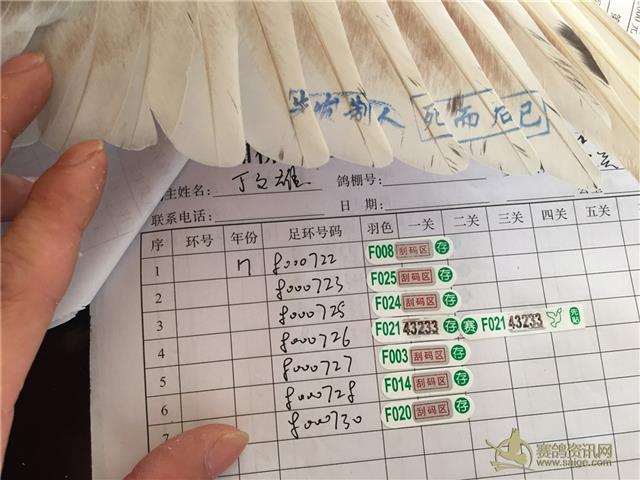 先发制人 死而后已
主姓名: 丁文雄 鸽棚号:
联系电话: 日 期:
序 环号 年份 足环号码 羽色 一关 二关 三关 四关 五关
1 17 8000722 F008 刮码区 存
2 8000723 F025 刮码区 存
3 8000725 F024 刮码区 存
4 8000726 F021 43233 存 赛 F021 43233
5 8000727 F003 刮码区 存
6 8000728 F014 刮码区 存
7 8000730 F020 刮码区 存
赛鸽资讯网
www.saige.com